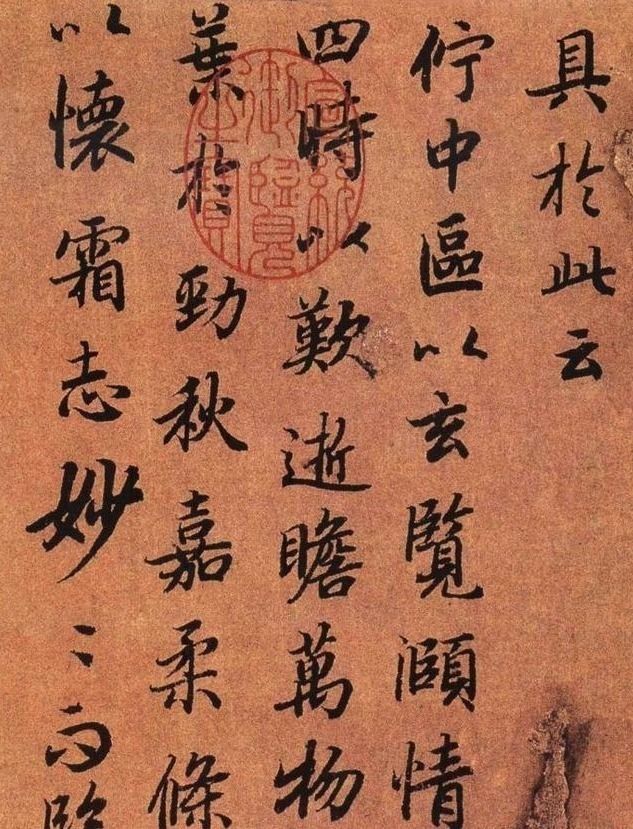 具於此云
佇中區以玄覽頤情
四時以歎逝瞻萬物
葉於勁秋嘉柔條
以懷霜志妙〻而臨
宣統御覽之寶